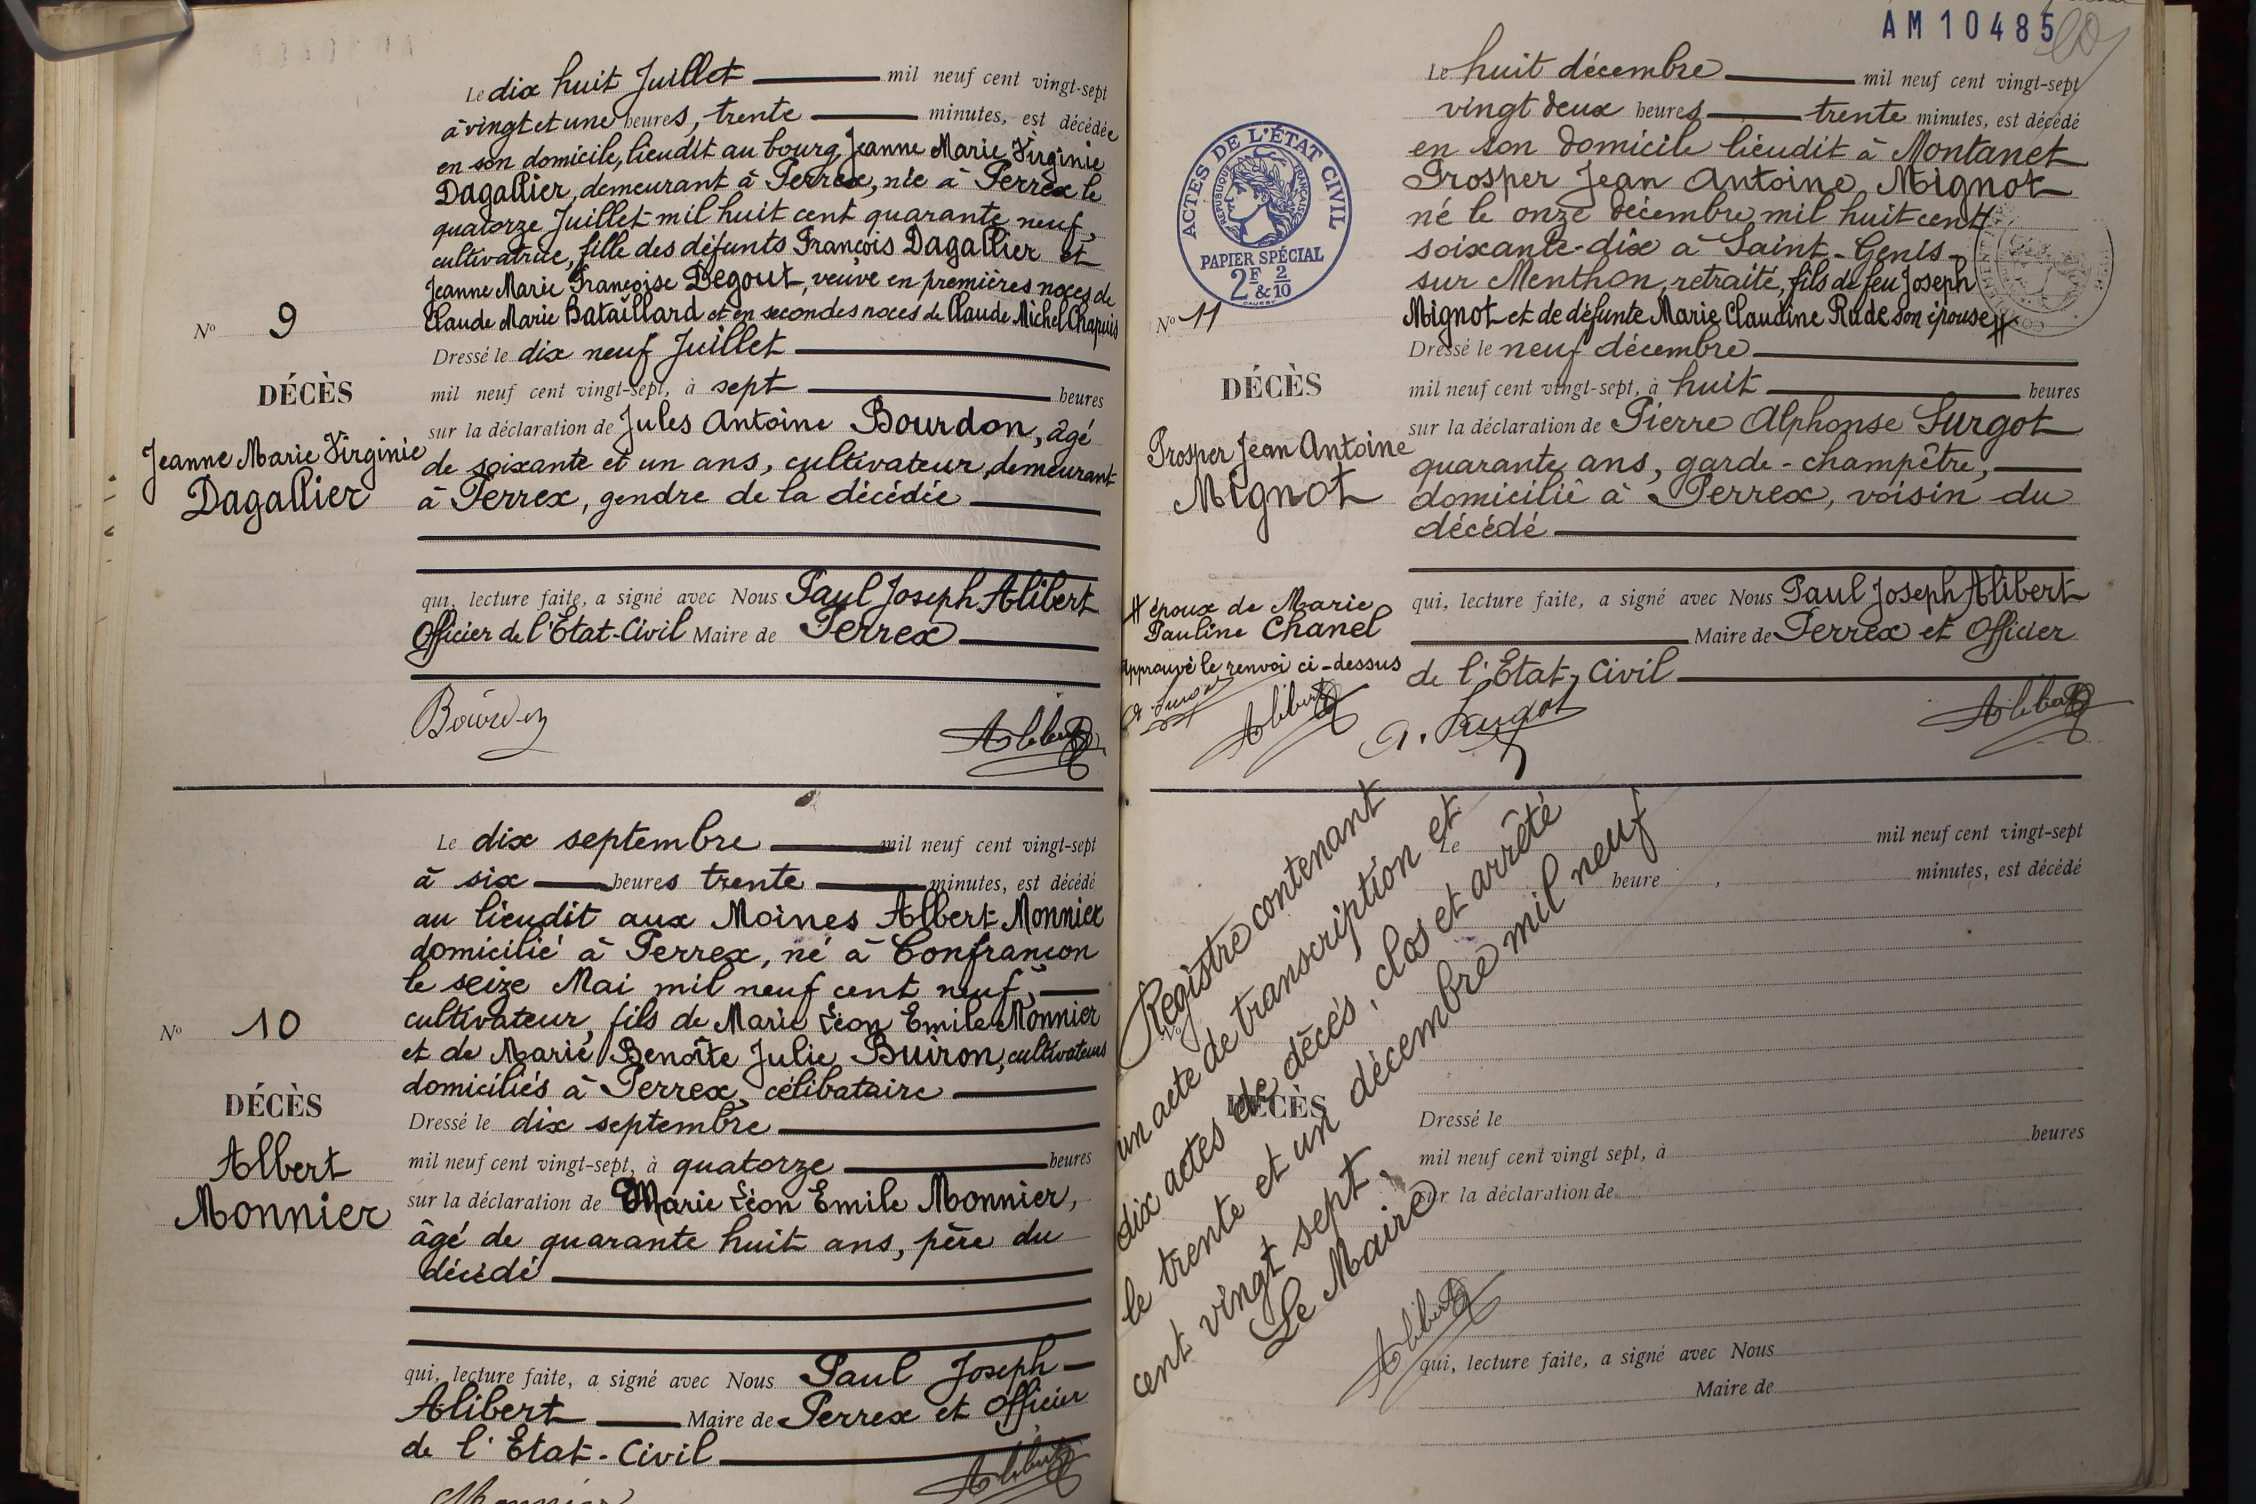 Le dix huit Juillet mil neuf cent vingt-sept
à vingt et une heures, trente minutes, est décédée
en son domicile, lieudit au bourg, Jeanne Marie Virginie
Dagallier, demeurant à Perrex, née à Perrex le
quatorze Juillet mil huit cent quarante neuf,
cultivatrice, fille des défunts François Dagallier et
Jeanne Marie Françoise Degout, veuve en premières noces de
Claude Marie Bataillard et en secondes noces de Claude Michel Chapuis
N° 9
Dressé le dix neuf Juillet
DÉCÈS
mil neuf cent vingt-sept, à sept heures
Jeanne Marie Virginie
Dagallier
sur la déclaration de Jules Antoine Bourdon, âgé
de soixante et un ans, cultivateur, demeurant
à Perrex, gendre de la décédée
qui, lecture faite, a signé avec Nous Paul Joseph Alibert
Officier de l'Etat-Civil Maire de Perrex
Bourdon
Alibert
Le dix septembre mil neuf cent vingt-sept
à six heures trente minutes, est décédé
au lieudit aux Moines Albert Monnier
domicilié à Perrex, né à Confrançon
le seize Mai mil neuf cent neuf,
cultivateur, fils de Marie Léon Emile Monnier
et de Marie Benoîte Julie Buiron, cultivateurs
domiciliés à Perrex, célibataire
N° 10
DÉCÈS
Albert
Monnier
Dressé le dix septembre
mil neuf cent vingt-sept, à quatorze heures
sur la déclaration de Marie Léon Emile Monnier,
âgé de quarante huit ans, père du
décédé
qui, lecture faite, a signé avec Nous Paul Joseph
Alibert Maire de Perrex et Officier
de l'Etat-Civil
Monnier
Alibert
AM 10485
ACTES DE L'ÉTAT CIVIL
RÉPUBLIQUE FRANÇAISE
PAPIER SPÉCIAL
2F & 2/10
Le huit décembre mil neuf cent vingt-sept
vingt deux heures trente minutes, est décédé
en son domicile lieudit à Montanet
Prosper Jean Antoine Mignot
né le onze décembre mil huit cent
soixante-dix à Saint-Genis-
sur Menthon, retraité, fils de feu Joseph
Mignot et de défunte Marie Claudine Rude son épouse #
N° 11
DÉCÈS
Prosper Jean Antoine
Mignot
Dressé le neuf décembre
mil neuf cent vingt-sept, à huit heures
sur la déclaration de Pierre Alphonse Surgot
quarante ans, garde-champêtre,
domicilié à Perrex, voisin du
décédé
# époux de Marie
Pauline Chanel
Approuvé le renvoi ci-dessus
A. Surgot
Alibert
qui, lecture faite, a signé avec Nous Paul Joseph Alibert
Maire de Perrex et Officier
de l'Etat-Civil
A. Surgot
Alibert
Registre contenant
un acte de transcription et
dix actes de décès, clos et arrêté
le trente et un décembre mil neuf
cent vingt sept,
Le Maire
Alibert
Le mil neuf cent vingt-sept
heure , minutes, est décédé
N°
DÉCÈS
Dressé le
mil neuf cent vingt sept, à heures
sur la déclaration de
qui, lecture faite, a signé avec Nous
Maire de